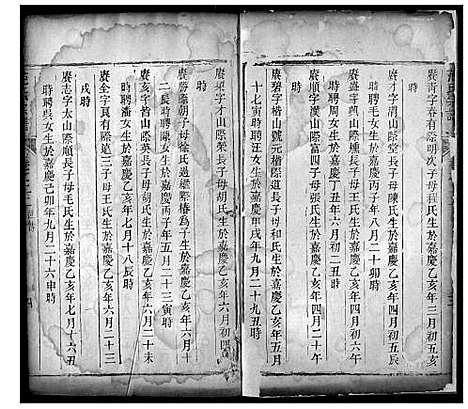 賡清字春有際明次子母
嘉慶乙亥年三月初五亥
時
賡才字清山際堂長子母陳氏生於嘉慶乙亥年四月初五辰
時聘毛女生於嘉慶丙子年八月二十卯時
賡盛字興山際
生於嘉慶乙亥年四月初八
時聘周女生於嘉慶丁丑年六月初二丑時
賡順字漢山際富四子母張氏生於嘉慶乙亥年四月二十午
時
賡碧字楷山號元楷際道長子母和氏生於嘉慶乙亥年五月
十七寅時聘汪女生於嘉慶甲戌年九月二十九丑時
賡梁字才山際榮長子母胡氏生於嘉慶乙亥年六月初四
時
子母徐氏過繼際椿為子生於嘉慶乙亥年六月十
二長時聘陳女生於嘉慶丙子年五月二十三寅時
賡亥字楷山際英長子母胡氏生於嘉慶乙亥年六月二十未
時聘潘女生於嘉慶乙亥年七月十八辰時
賡全字良有際第三子母王氏生於嘉慶乙亥年六月二十三
戌時
賡志字太山際順長子母毛氏生於嘉慶乙亥年七月十六丑
時聘吳女生於嘉慶己卯年九月二十六申時